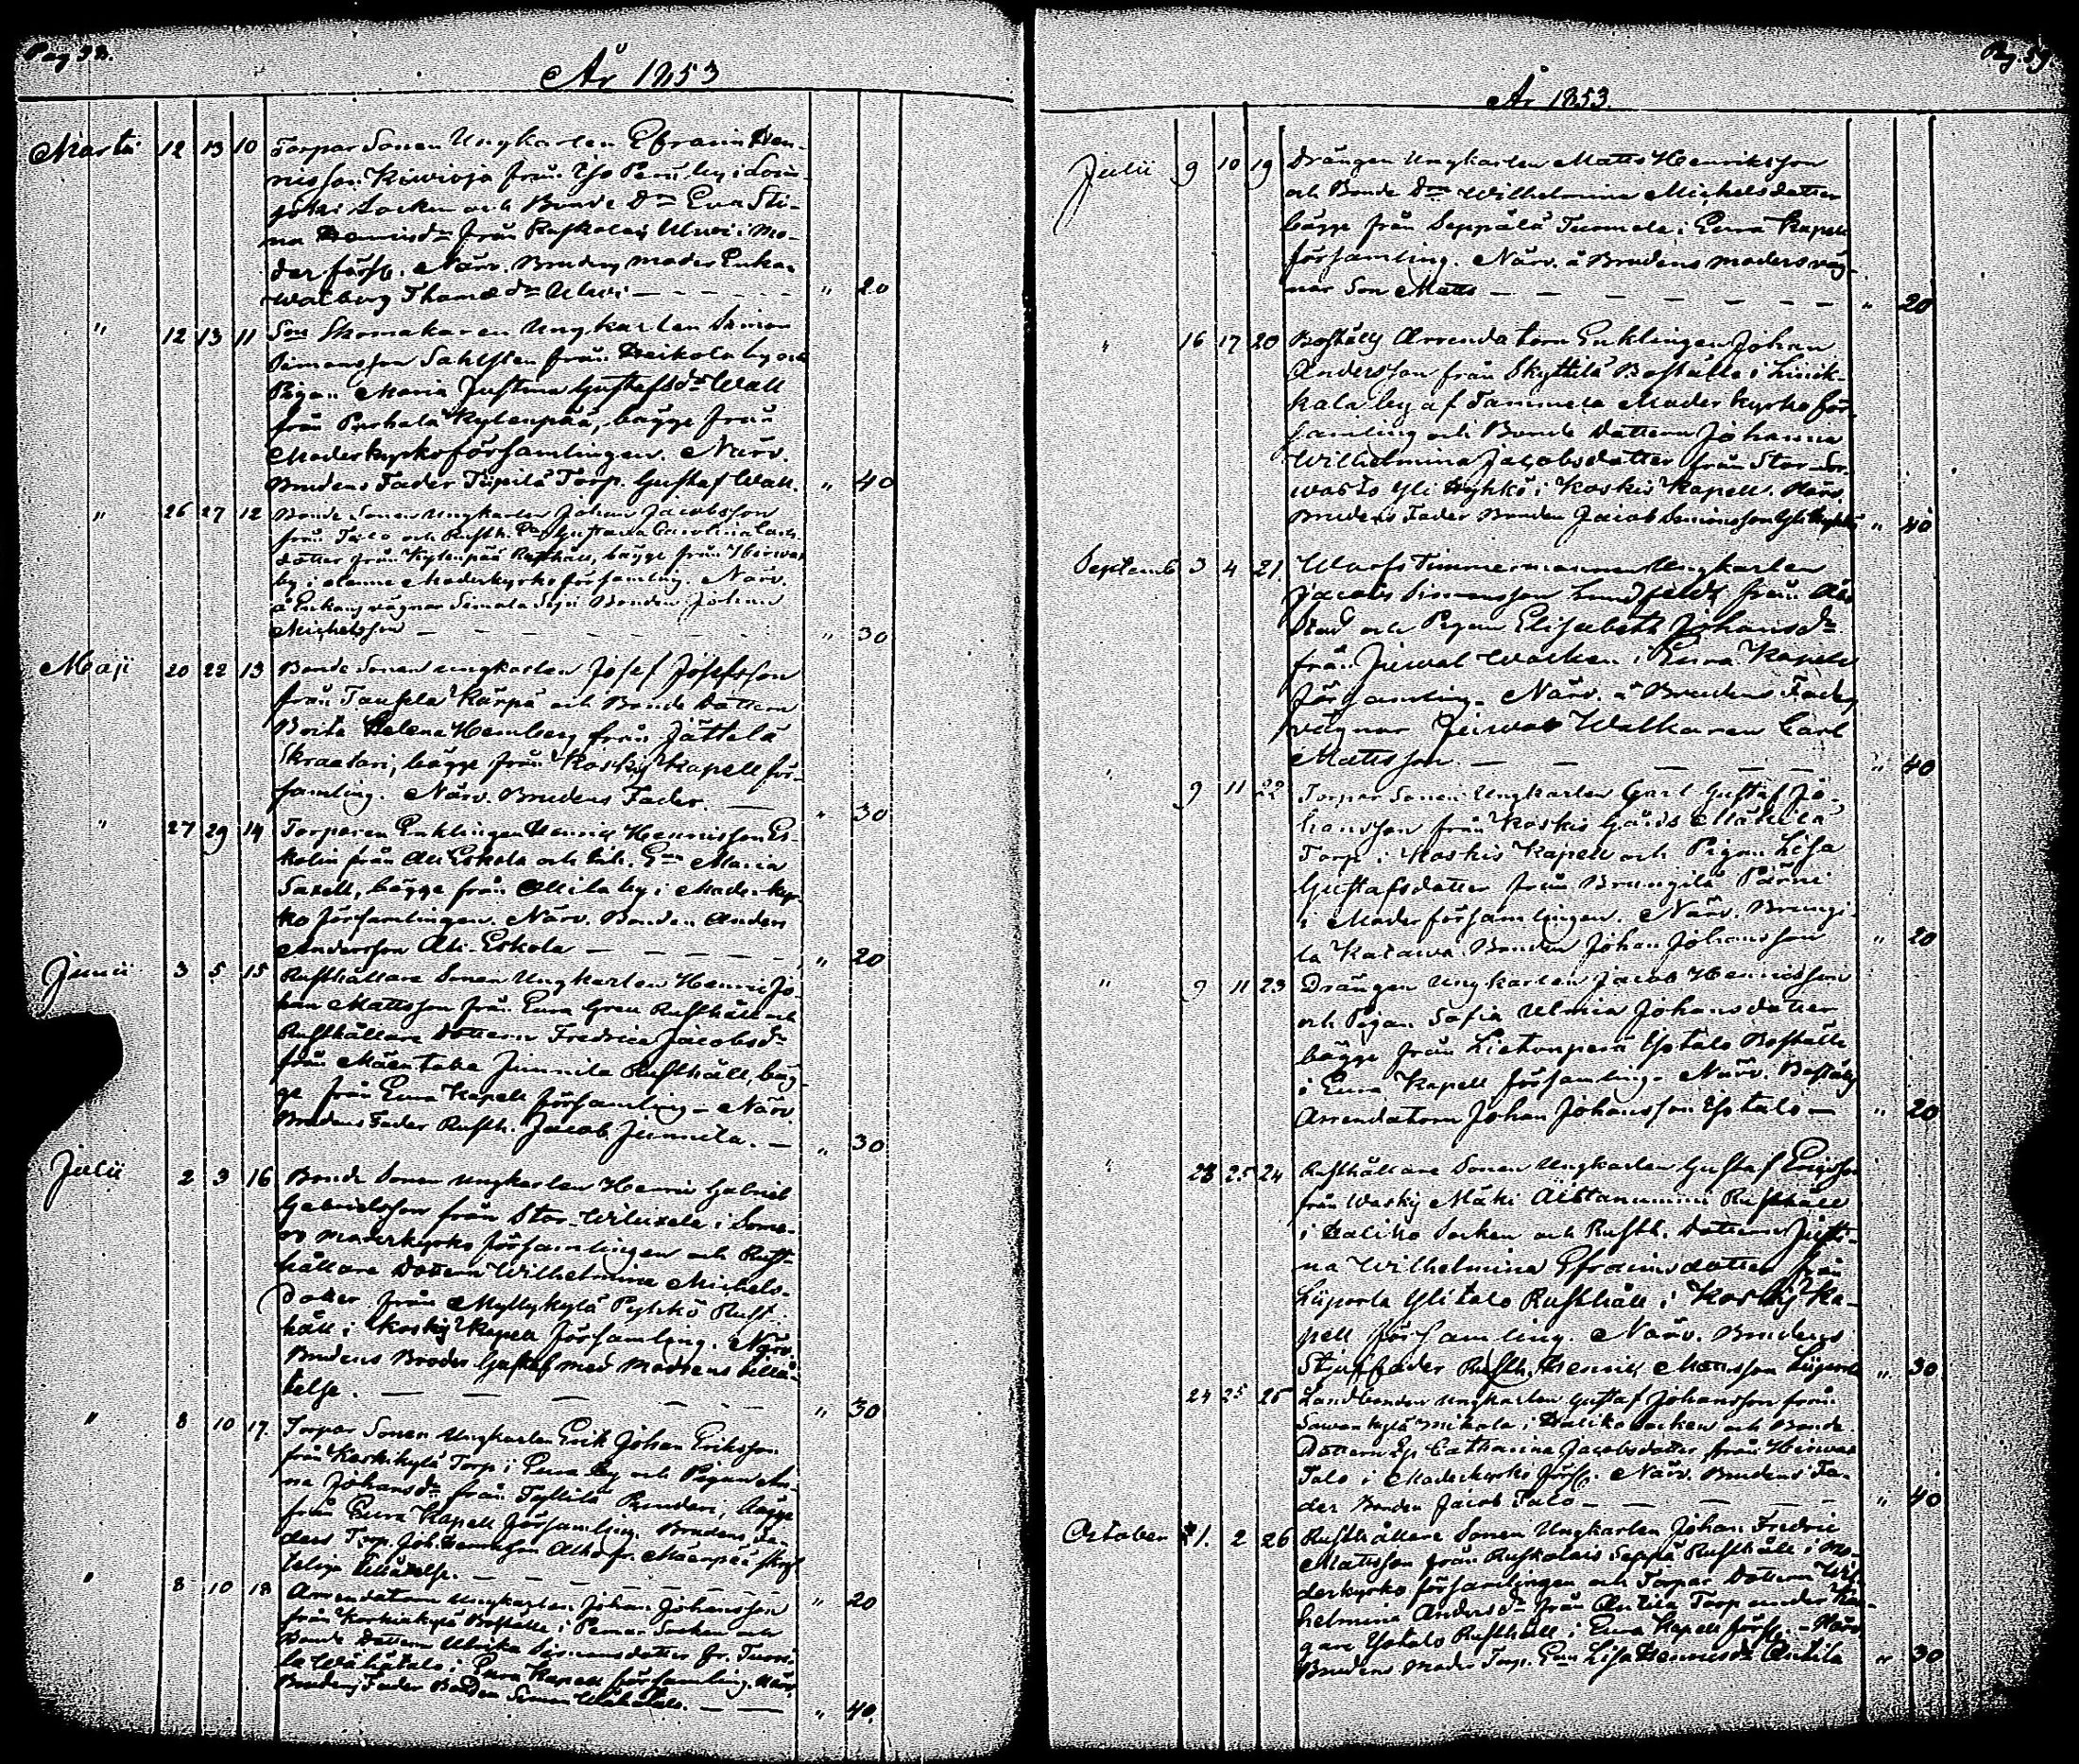 Pag 38.
År 1853
Martii 12 13 10 Torpar Sonen Ungkarlen Efraim Hen-
nisson Kiwioja från Yso Perä by i Loim-
joki Socken och Bonde Dn Eva Sti-
na Hennisdn från Ruskolais Uluri i Mo-
der förs. Närv. Brudens moder Enkan
Walborg Thomædn Uluri — " 20
" 12 13 11 Sons Skomakaren Ungkarlen Simon
Simonsson Sahlsten från Heikola by och
Pigan Maria Justina Gustafsdn Wall
från Purhala Kylenpää, bägge från
Moderkyrkoförsamlingen. Närv.
Brudens Fader Torp. Gustaf Wall. " 40
" 26 27 12 Bonde Sonen Ungkarlen Johan Jacobsson
från Talo och Rusth. Gustava Carolina Carls-
dotter från Kylenpää Rusthåll, bägge från Hirwas
by i denne Moderkyrko församling. Närv.
å Enkans vägnar Simola Bonden Johan
Michelsson — " 30
Maji 20 22 13 Bonde Sonen Ungkarlen Josef Josefsson
från Tausela Kärpä och Bonde Dottern
Brita Helena Hemberg från Jättelä
Skraatari, bägge från Koskis Kapell för-
samling. Närv. Brudens Fader — " 30
" 27 29 14 Torparen Enklingen Henric Hennisson Es-
kolin från Ali Eskola och Enk. Maria
Saxell, bägge från Ollila by i Moder kyr-
ko församlingen. Närv. Bonden Anders
Andersson Ali Eskola — " 20
Junii 3 5 15 Rusthållare Sonen Ungkarlen Henric Jo-
han Mattsson från Eura Greu Rusthåll och
Rusthållare Dottern Fredrica Jacobsdn
från Mäentaka Junnila Rusthåll, bäg-
ge från Eura Kapell församling — Närv.
Brudens Fader Rusth. Jacob Junnila. — " 30
Julii 2 3 16 Bonde Sonen Ungkarlen Henric Gabriel
Gabrielsson från Stor-Wiluxela i Some-
ro Moderkyrko församlingen och Rust-
hållare Dottern Wilhelmina Michels-
dotter från Myllykylä Pyhkö Rust-
håll i Koskis Kapell församling. Närv.
Brudens Broder Gustaf med Modrens tillå-
telse. — " 30
" 8 10 17. Torpar Sonen Ungkarlen Erik Johan Eriksson
från Koskikylä Torp i Eura by och Pigan An-
na Johansdn från Tyllilä Rundari, bägge
från Eura Kapell församling. Brudens Fa-
ders Torp. Joh. Hennisson Alho fr. Mäenpää skrif-
telige tillåtelse. — " 20
" 8 10 18 Arrendatorn Ungkarlen Johan Johansson
från Korkiakylä Boställe i Pemar Socken och
Bonde Dottern Ulrika Simonsdotter fr. Tuori-
la Wähätalo i Eura Kapell församling. Närv.
Brudens Fader Bonden Simon Wähätalo. — " 40.
Pag. 39.
År 1853.
Julii 9 10 19 Drängen Ungkarlen Matts Henriksson
och Bonde Dn Wilhelmina Michelsdotter
bägge från Seppälä Tuomola i Eura Kapell
församling. Närv. å Brudens moders väg-
nar Son Matts — " 20
" 16 17 20 Boställs Arrendatorn Enklingen Johan
Andersson från Skyttilä Boställe i Liuk-
kala by af Tammela Moder kyrko för-
samling och Bonde dottern Johanna
Wilhelmina Jacobsdotter från Stor-Sor-
wasto Yli Hyhkö i Koskis Kapell. Närv.
Brudens Fader Bonden Jacob Simonsson Yli Hyhkö " 40
Septemb 3 4 21. Warfs Timmermannen Ungkarlen
Jacob Simonsson Lundfeldt från Åbo
Stad och Pigan Elisabeth Johansdn
från Juwal Walken i Eura Kapell
församling. Närv. å Brudens Faders
vägnar Juwas Walkaren Carl
Mattsson — " 40
" 9 11 22 Torpar Sonen Ungkarlen Carl Gustaf Jo-
hansson från Koskis Gårds Mäkilä
Torp i Koskis Kapell och Pigan Lisa
Gustafsdotter från Bruugilä Pärni
i Moder församlingen. Närv. Bruugi-
lä Katawa Bonden Johan Johansson " 20
" 9 11 23 Drängen Ungkarlen Jacob Hennisson
och Pigan Sofia Ulmia Johansdotter
bägge från Lietonperä Ysotalo Boställe
i Eura Kapell församling — Närv. Boställs
Arrendatorn Johan Johansson Ysotalo — " 20
" 23 25 24 Rusthållare Sonen Ungkarlen Gustaf Ericsson
från Waskis Mäki Äistanummi Rusthåll
i Haliko Socken och Rusth. Dottern Justi-
na Wilhelmina Efraimsdotter från
Liiporla Ylitalo Rusthåll i Koskis Ka-
pell församling. Närv. Brudens
Stjuffader Rusth. Henrik Mattsson Liiporla " 30
24 25 25 Landbonden Ungkarlen Gustaf Johansson från
Sawenkylä Mikola i Haliko Socken och Bonde
Dottern Eva Catharina Jacobsdotter från Hirwas
Talo i Moderkyrko förs. Närv. Brudens Fa-
der Bonden Jacob Talo — " 40
October 1. 2 26 Rusthållare Sonen Ungkarlen Johan Fredric
Mattsson från Ruskolais Seppä Rusthåll i Mo-
derkyrko församlingen och Torpar Dottern Wil-
helmina Andersdn från Antila Torp under Kan-
gare Ysotalo Rusthåll i Eura Kapell förs. — Närv
Brudens Moder Torp. Enn Lisa Hennisdn Antila " 30